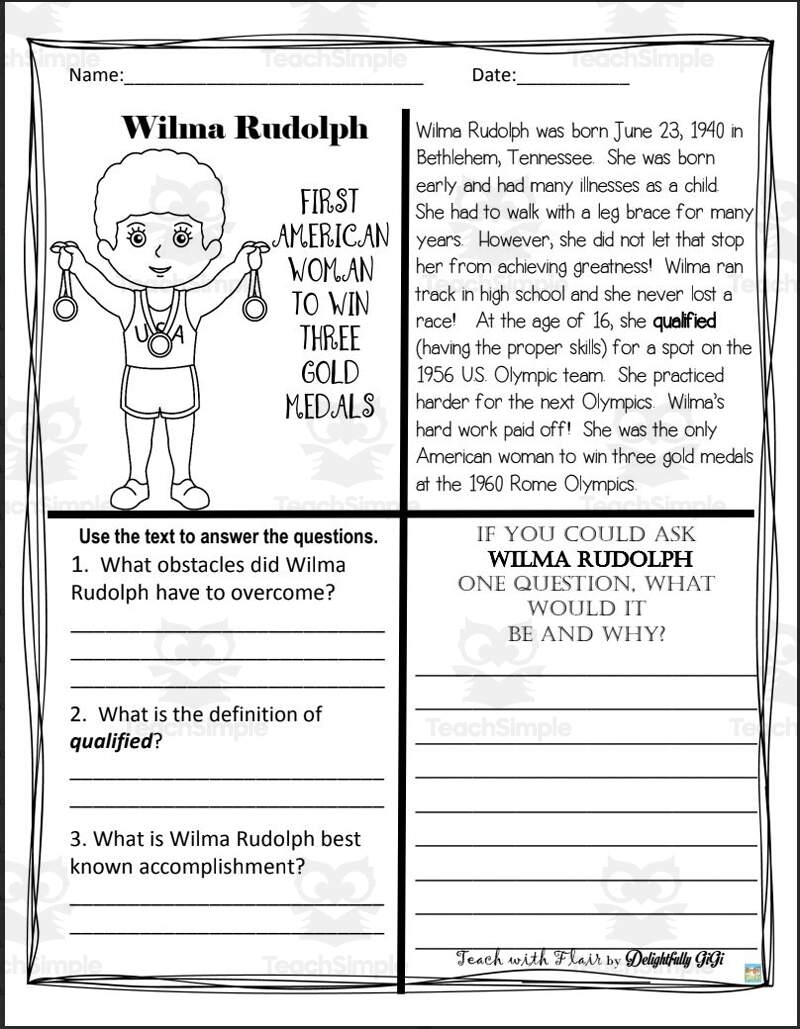 Name:____________________________ Date:___________
Wilma Rudolph
FIRST
AMERICAN
WOMAN
TO WIN
THREE
GOLD
MEDALS
USA
Wilma Rudolph was born June 23, 1940 in
Bethlehem, Tennessee. She was born
early and had many illnesses as a child.
She had to walk with a leg brace for many
years. However, she did not let that stop
her from achieving greatness! Wilma ran
track in high school and she never lost a
race! At the age of 16, she qualified
(having the proper skills) for a spot on the
1956 U.S. Olympic team. She practiced
harder for the next Olympics. Wilma's
hard work paid off! She was the only
American woman to win three gold medals
at the 1960 Rome Olympics.
Use the text to answer the questions.
1. What obstacles did Wilma
Rudolph have to overcome?
2. What is the definition of
qualified?
3. What is Wilma Rudolph best
known accomplishment?
IF YOU COULD ASK
WILMA RUDOLPH
ONE QUESTION, WHAT
WOULD IT
BE AND WHY?
Teach with Flair by Delightfully GiGi
TeachSimple